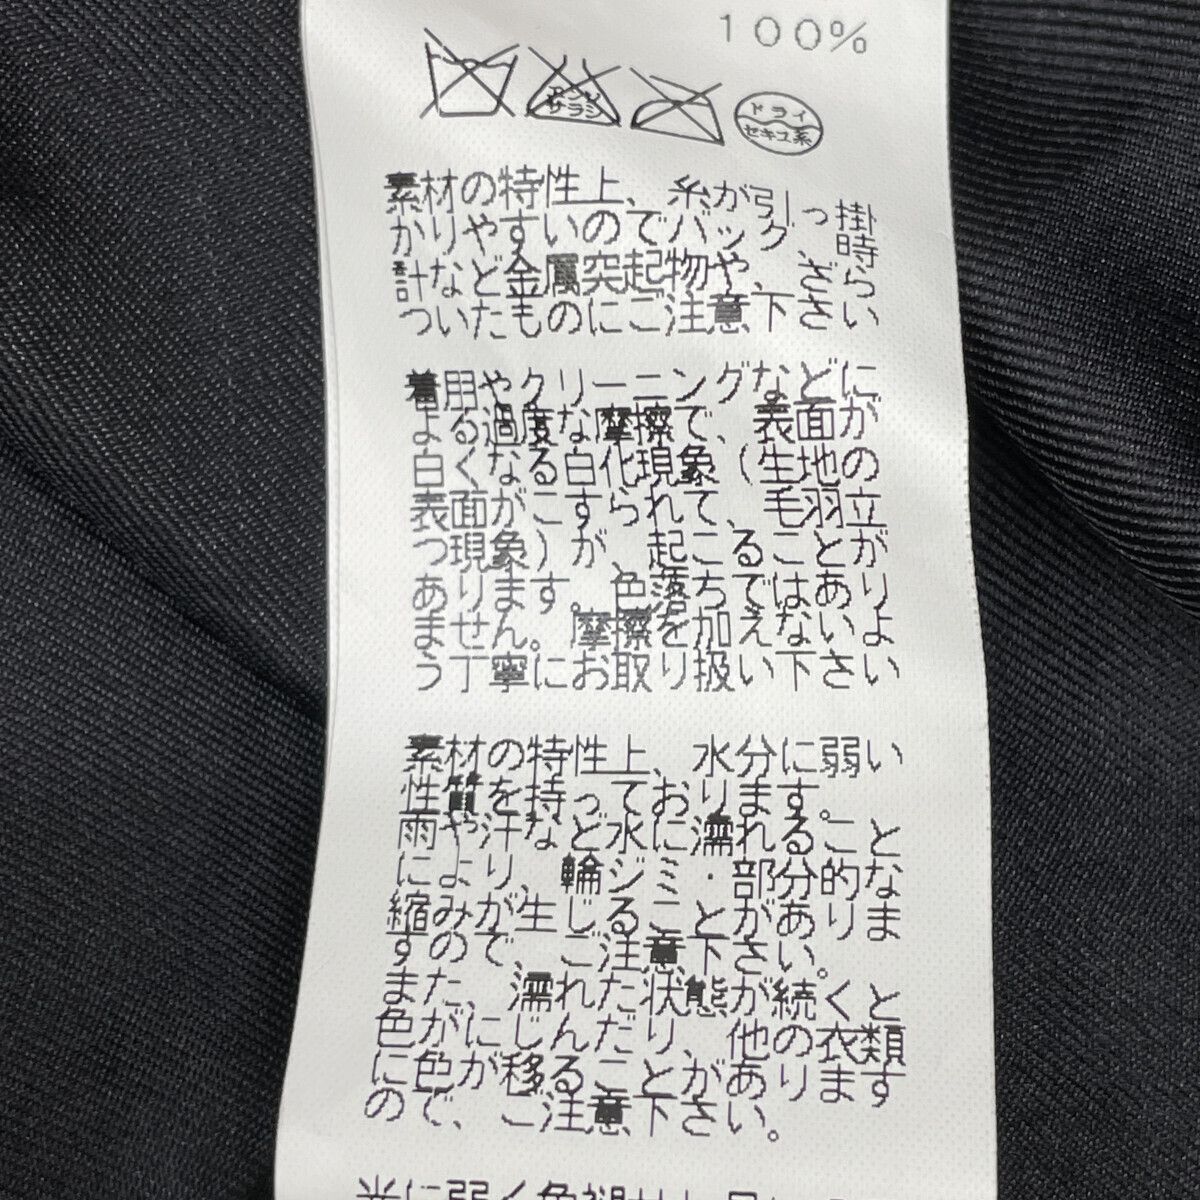 100%
エンソ
サラシ
ドライ
セキユ系
素材の特性上、糸が引っ掛
かりやすいのでバッグ、時
計など金属突起物や、ざら
ついたものにご注意下さい
着用やクリーニングなどに
よる過度な摩擦で、表面が
白くなる白化現象(生地の
表面がこすられて、毛羽立
つ現象)が、起こることが
あります。色落ちではあり
ません。摩擦を加えないよ
う丁寧にお取り扱い下さい
素材の特性上、水分に弱い
性質を持っております。
雨や汗など水に濡れること
により、輪ジミ・部分的な
縮みが生じることがありま
すので、ご注意下さい。
また、濡れた状態が続くと
色がにじんだり、他の衣類
に色が移ることがあります
ので、ご注意下さい。
光に弱く色褪せ